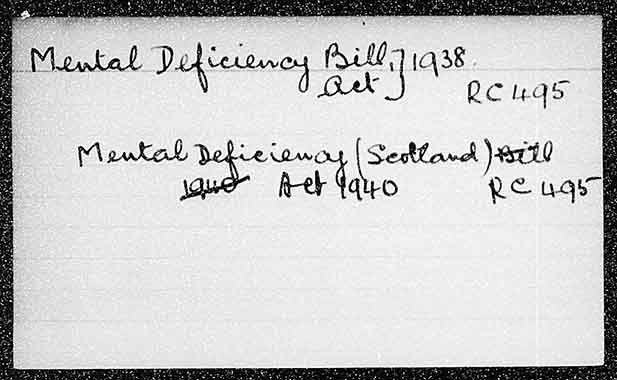 Mental Deficiency Bill, } 1938.
Act } RC 495
Mental Deficiency (Scotland) Bill
1940 Act 1940 RC 495